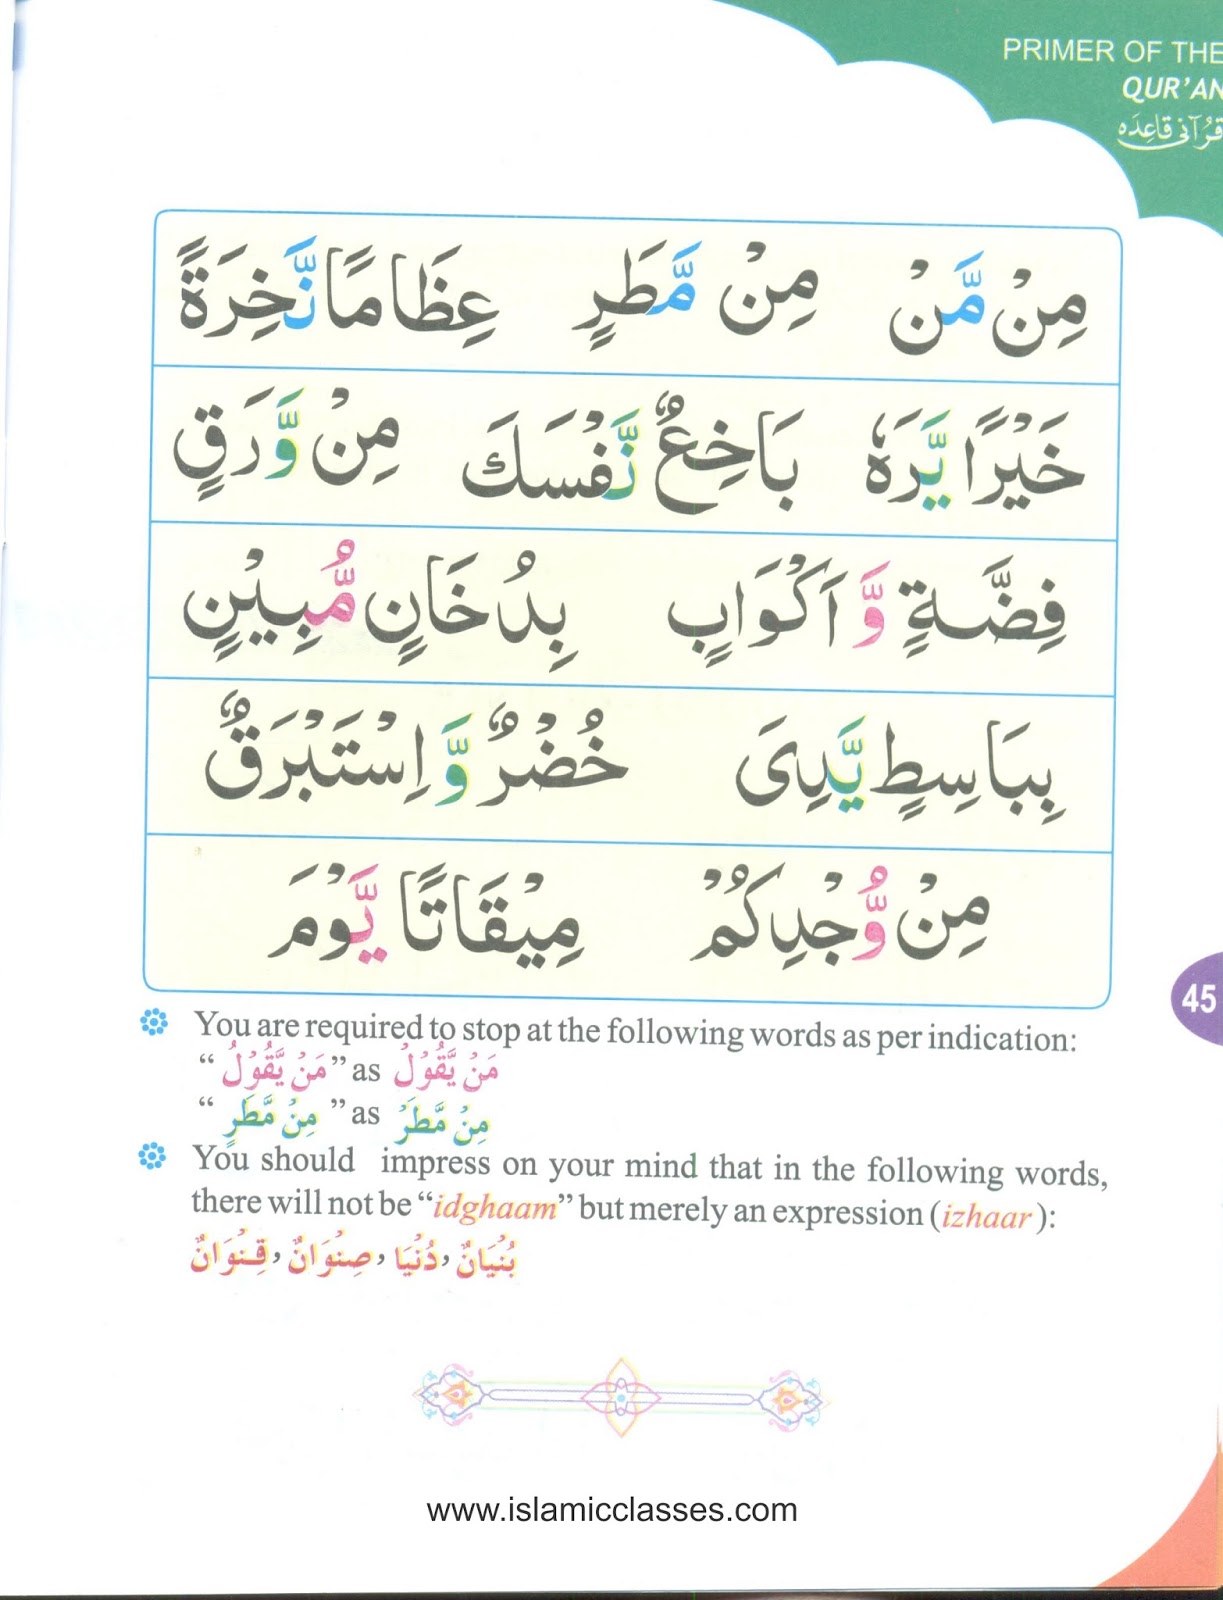 PRIMER OF THE
QUR’AN
قرآنی قاعِدَہ
مِنْ مَّنْ مِنْ مَّطَرٍ عِظَامًا نَّخِرَةً
خَيْرًا يَّرَهٗ بَاخِعٌ نَّفْسَكَ مِنْ وَّرَقٍ
فِضَّةٍ وَّ اَكْوَابٍ بِدُخَانٍ مُّبِيْنٍ
بِبَاسِطٍ يَّدِىَ خُضْرٌ وَّ اِسْتَبْرَقٌ
مِنْ وُّجْدِكُمْ مِيْقَاتًا يَّوْمَ
45
You are required to stop at the following words as per indication:
“ مَنْ يَّقُوْلُ ” as مَنْ يَّقُوْلْ
“ مِنْ مَّطَرٍ ” as مِنْ مَّطَرْ
You should impress on your mind that in the following words,
there will not be “idghaam” but merely an expression (izhaar):
بُنْيَانٌ ، دُنْيَا ، صِنْوَانٌ ، قِنْوَانٌ
www.islamicclasses.com